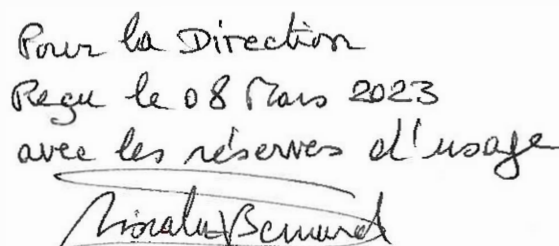 Pour la Direction
Reçu le 08 Mars 2023
avec les réserves d'usage
Bernard